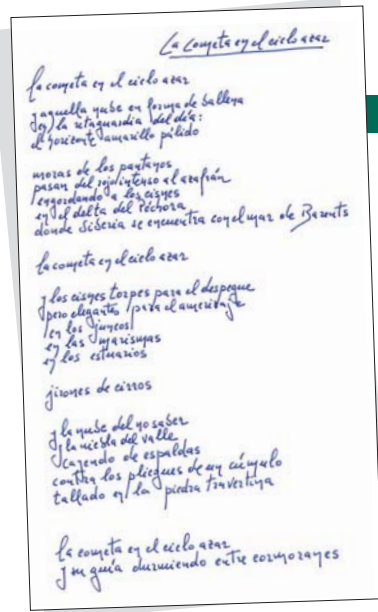 La cometa en el cielo azar
la cometa en el cielo azar
y aquella nube en forma de ballena
en la retaguardia del día:
el horizonte amarillo pálido
moras de los pantanos
pasan del rojo intenso al azafrán
engordando a los cisnes
en el delta del Péchora
donde Siberia se encuentra con el mar de Barents
la cometa en el cielo azar
y los cisnes torpes para el despegue
pero elegantes para el amerizaje
en los juncos
en las marismas
en los estuarios
jirones de cirros
y la nube del no saber
y la niebla del valle
cayendo de espaldas
contra los pliegues de un cúmulo
tallado en la piedra travertina
la cometa en el cielo azar
y su guía durmiendo entre cormoranes